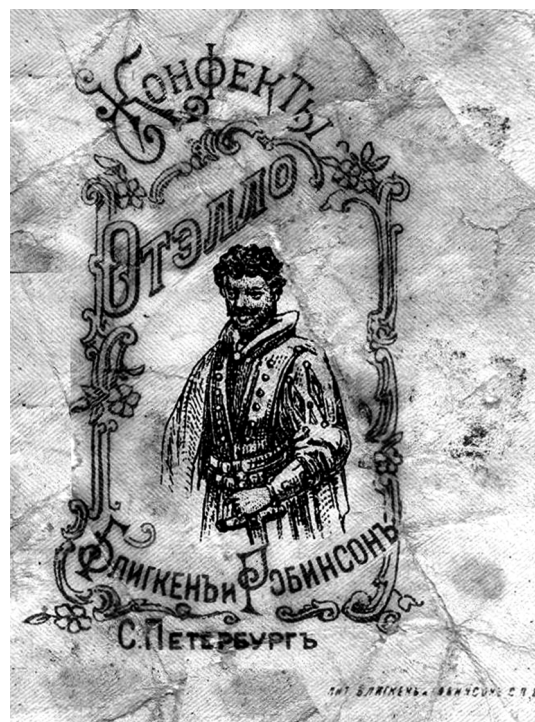 Конфекты
Отэлло
Блигкенъ и Робинсонъ
С. Петербургъ
Лит. Блигкенъ и Робинсонъ С.П.